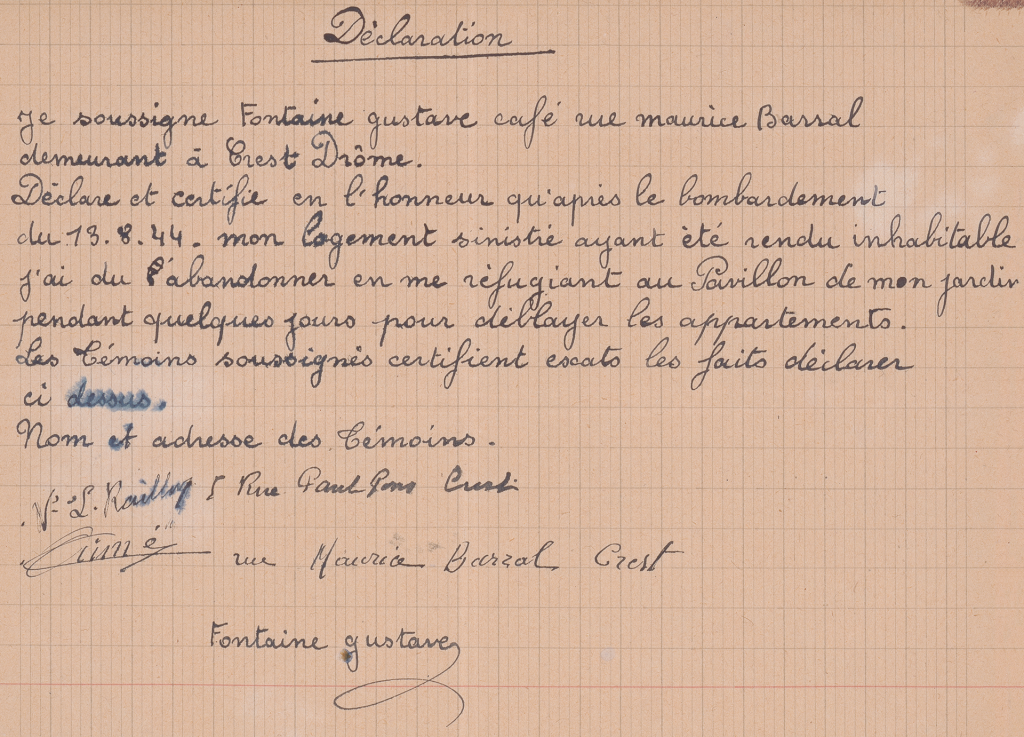 Déclaration
Je soussigne Fontaine gustave café rue maurice Barral
demeurant à Crest Drôme.
Déclare et certifie en l'honneur qu'après le bombardement
du 13.8.44. mon logement sinistré ayant été rendu inhabitable
j'ai du l'abandonner en me réfugiant au Pavillon de mon jardin
pendant quelques jours pour déblayer les appartements.
Les Témoins soussignés certifient escats les faits déclarer
ci dessus.
Nom et adresse des Témoins.
L. 5 Rue Paul Pons Crest
Aimé
rue Maurice Barral Crest
Fontaine gustave